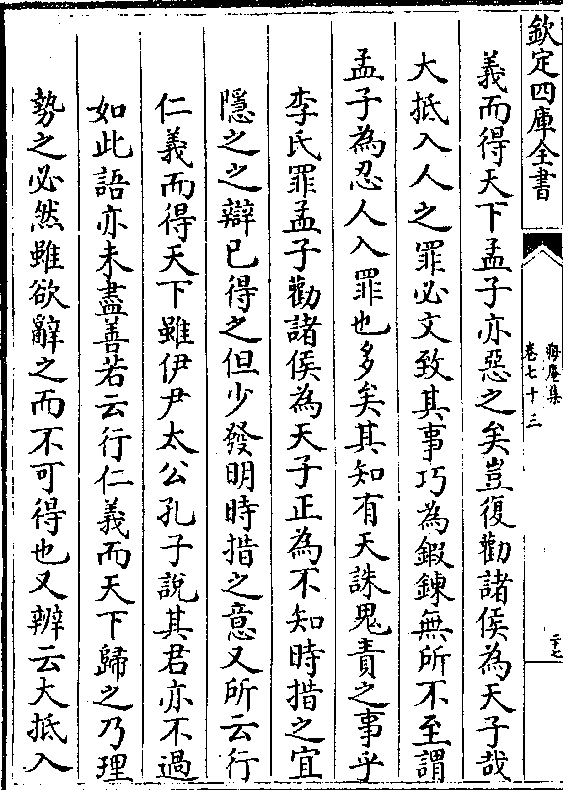 欽定四庫全書
晦庵集
卷七十三
二十七
義而得天下孟子亦惡之矣豈復勸諸侯為天子哉
大抵入人之罪必文致其事巧為鍜鍊無所不至謂
孟子為忍人入罪也多矣其知有天誅鬼責之事乎
李氏罪孟子勸諸侯為天子正為不知時措之宜
隱之之辯已得之但少發明時措之意又所云行
仁義而得天下雖伊尹太公孔子說其君亦不過
如此語亦未盡善若云行仁義而天下歸之乃理
勢之必然雖欲辭之而不可得也又辨云大抵入